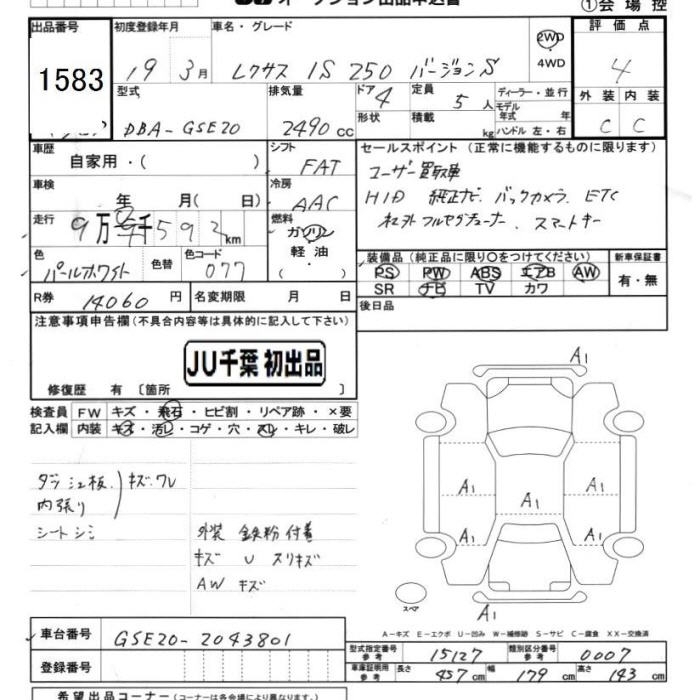 オークション出品申込書
①会場控
出品番号 初度登録年月 車名・グレード 評価点
1583 19年 3月 レクサス IS 250 バージョンS 2WD・4WD 4
型式 排気量 ドア 4 定員 5人 ディーラー・並行 外装 内装
DBA-GSE20 2490cc 形状 積載 kg モデル年式 年 C C
ハンドル 左・右
車歴 シフト セールスポイント (正常に機能するものに限ります)
自家用・( ) FAT ユーザー買取車
車検 冷房 HID 純正ナビ. バックカメラ. ETC
年 月( 日) AAC 社外フルセグチューナー. スマートキー
走行 燃料
9万 千592km ガソリン
軽油
装備品 (純正品に限り〇をつけてください) 新車保証書
色 色替 色コード PS PW ABS エアB AW 有・無
パールホワイト 077 SR ナビ TV カワ
R券 14060円 名変期限 月 日 後日品
注意事項申告欄 (不具合内容等は具体的に記入して下さい)
JU千葉 初出品
修復歴 有 〔箇所 〕
検査員 FW キズ・飛石・ヒビ割・リペア跡・×要
記入欄 内装 キズ・汚レ・コゲ・穴・スレ・キレ・破レ
ダッシュ板. キズ.ワレ
内張り
シートシミ
外装 鉄粉付着
キズ U スリキズ
AW キズ
A1
A1 A1
A1
A1 A1
A1
スペア
A-キズ E-エクボ U-凹み W-補修跡 S-サビ C-腐食 XX-交換済
車台番号 GSE20-2043801
登録番号
型式指定番号 参考 15127 類別区分番号 参考 0007
車庫証明用 参考 長さ 457cm 幅 179cm 高さ 143cm
希望出品コーナー (コーナーは各会場により異なります。)